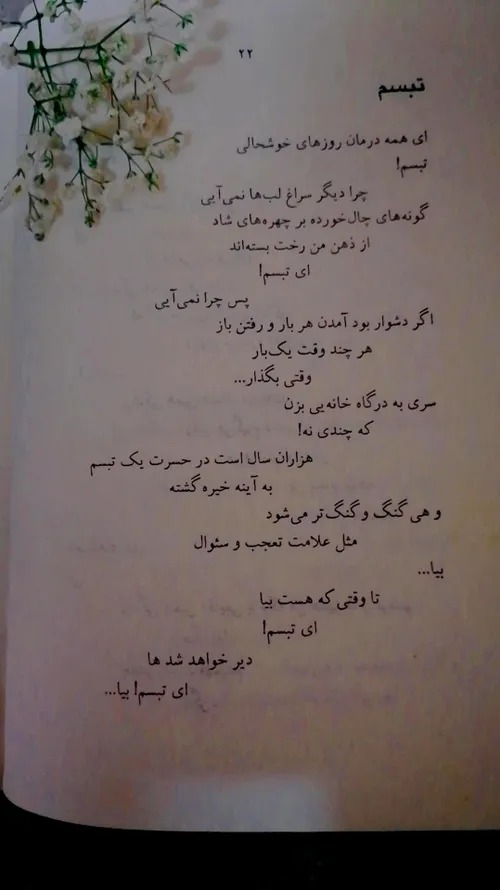 ۲۲
تبسم
ای همه درمان روزهای خوشحالی
تبسم!
چرا دیگر سراغ لب‌ها نمی‌آیی
گونه‌های چال‌خورده بر چهره‌های شاد
از ذهن من رخت بسته‌اند
ای تبسم!
پس چرا نمی‌آیی
اگر دشوار بود آمدن هر بار و رفتن باز
هر چند وقت یک‌بار
وقتی بگذار...
سری به درگاه خانه‌یی بزن
که چندی نه!
هزاران سال است در حسرت یک تبسم
به آینه خیره گشته
و هی گنگ و گنگ‌تر می‌شود
مثل علامت تعجب و سئوال
بیا...
تا وقتی که هست بیا
ای تبسم!
دیر خواهد شد ها
ای تبسم! بیا...